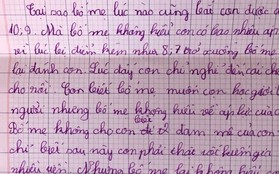 Tại sao bố mẹ lúc nào cũng bắt con được
10; 9. Mà bố mẹ không hiểu con có bao nhiêu áp
lúc bị điểm kém như 8; 7 trở xuống bố mẹ
lại đánh con. Lúc đấy con chỉ nghĩ đến cái
cho nổi. Con biết bố mẹ muốn con học giỏi
người nhưng bố mẹ không hiểu về áp lực của
Bố mẹ không cho con đi đam mê của con
chỉ biết sau này con phải theo hướng
nhiều tiền. Nhưng bố mẹ lại không hiểu